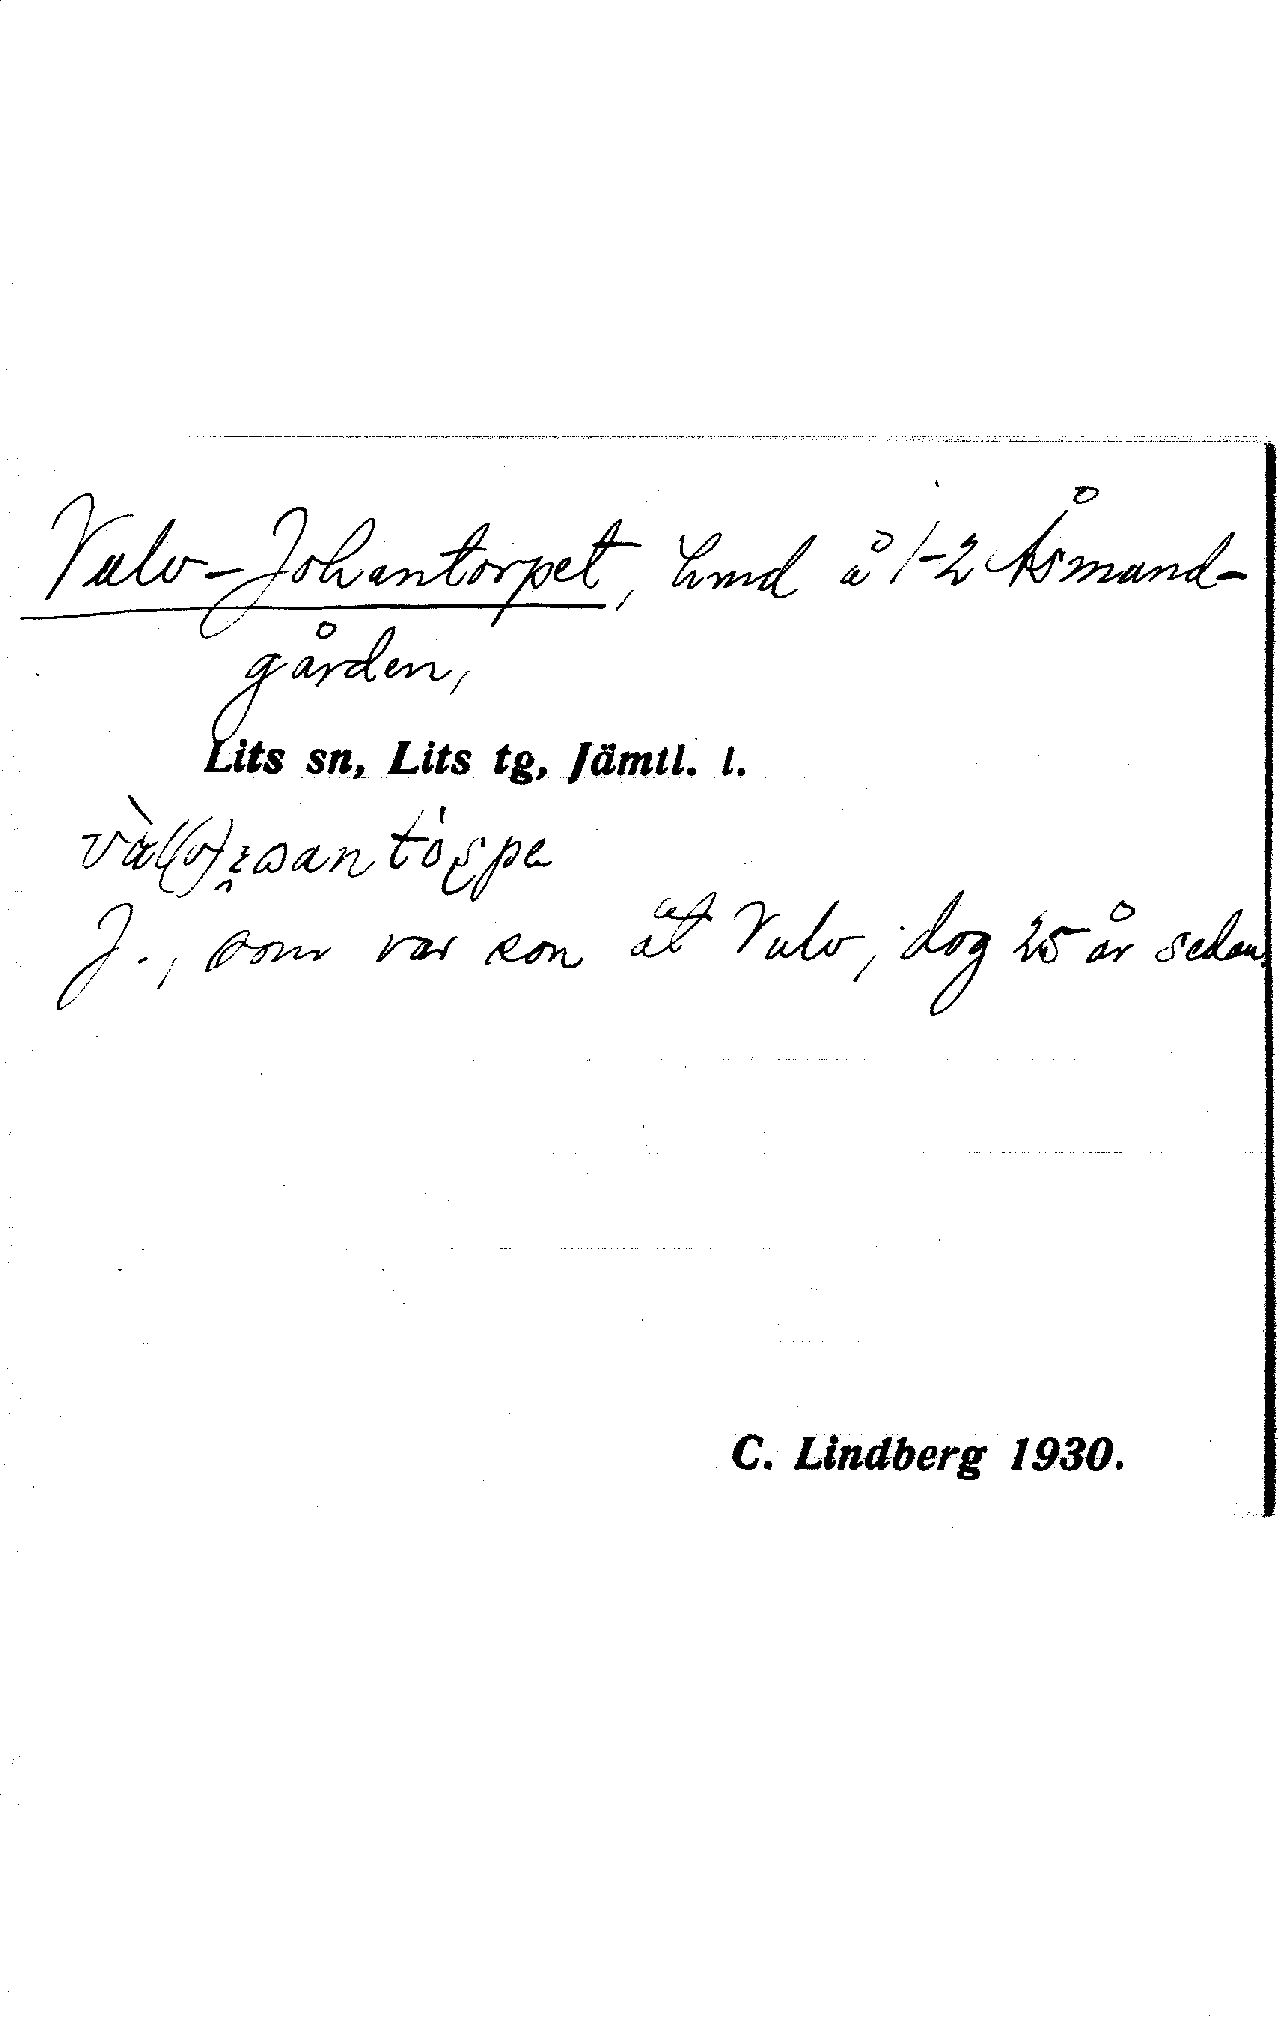 Valv-Johantorpet, hmd å 1-2 Åsmand-
gården,
Lits sn, Lits tg, Jämtl. l.
J., som var son åt Valv, dog 25 år sedan.
C. Lindberg 1930.